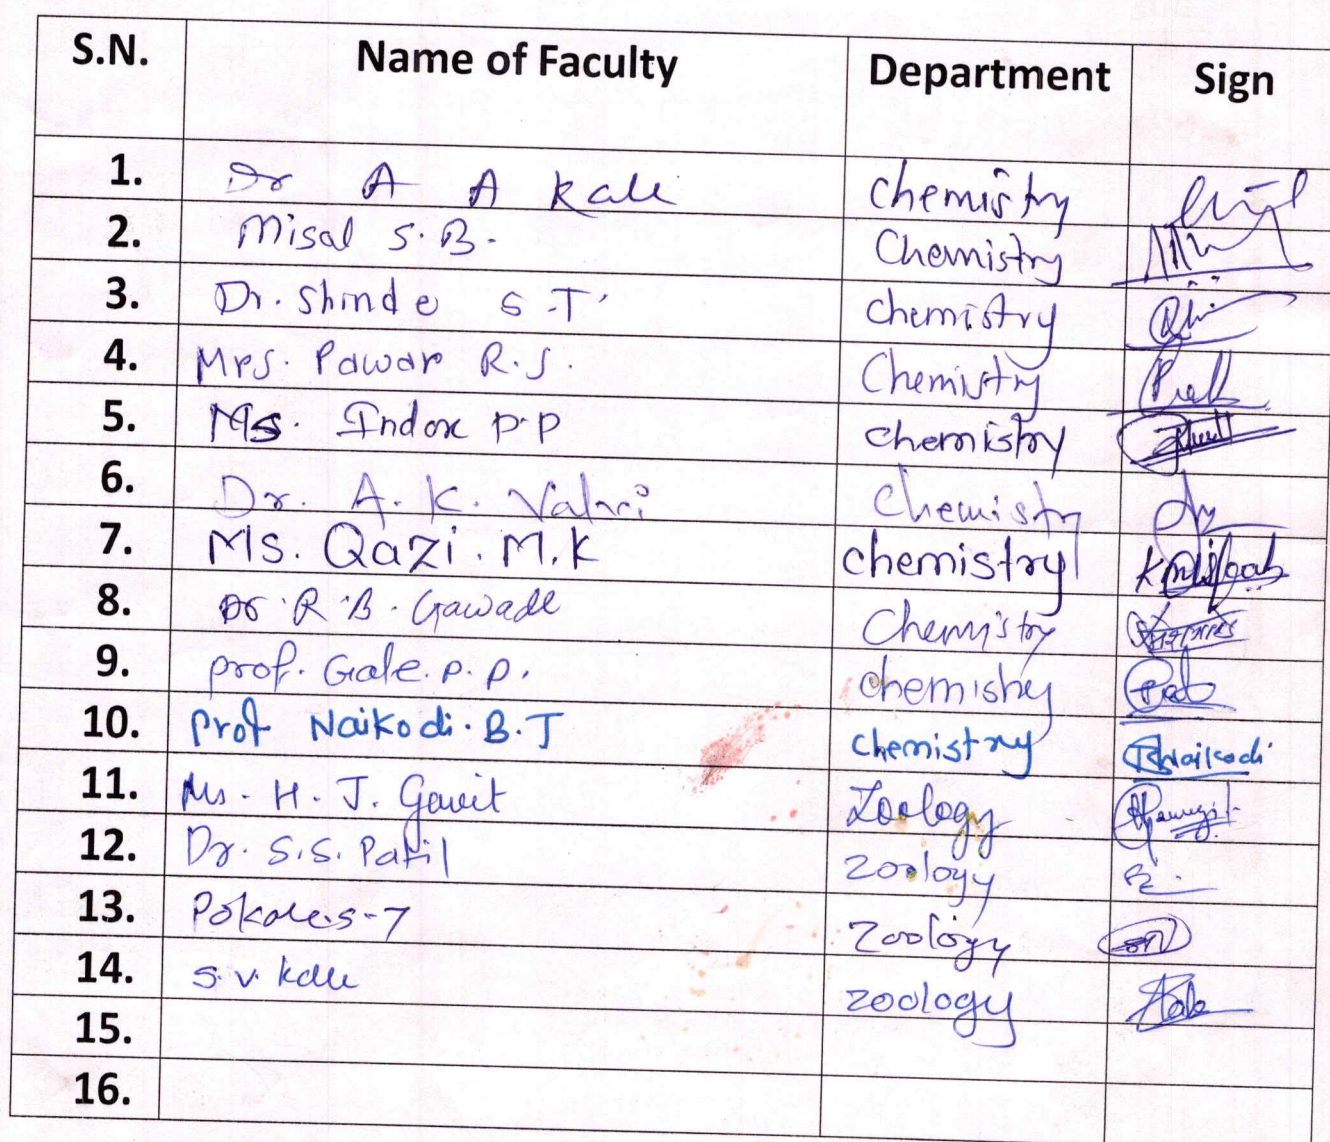 S.N. Name of Faculty Department Sign
1. Dr A A Kale Chemistry
2. Misal S.B. Chemistry
3. Dr. Shinde S.T. chemistry
4. Mrs. Pawar R.S. Chemistry
5. Ms. Indore P.P chemistry
6. Dr. A. K. Valvi Chemistry
7. Ms. Qazi. M.K chemistry
8. Dr. R. B. Gawade Chemistry
9. prof. Gale. P. P. chemistry
10. Prof Naikodi. B. J chemistry BNaikodi
11. Ms. H. J. Gavit Zoology
12. Dr. S.S. Patil zoology
13. Pokale.s- Zoology
14. S.V. Kale zoology
15.
16.